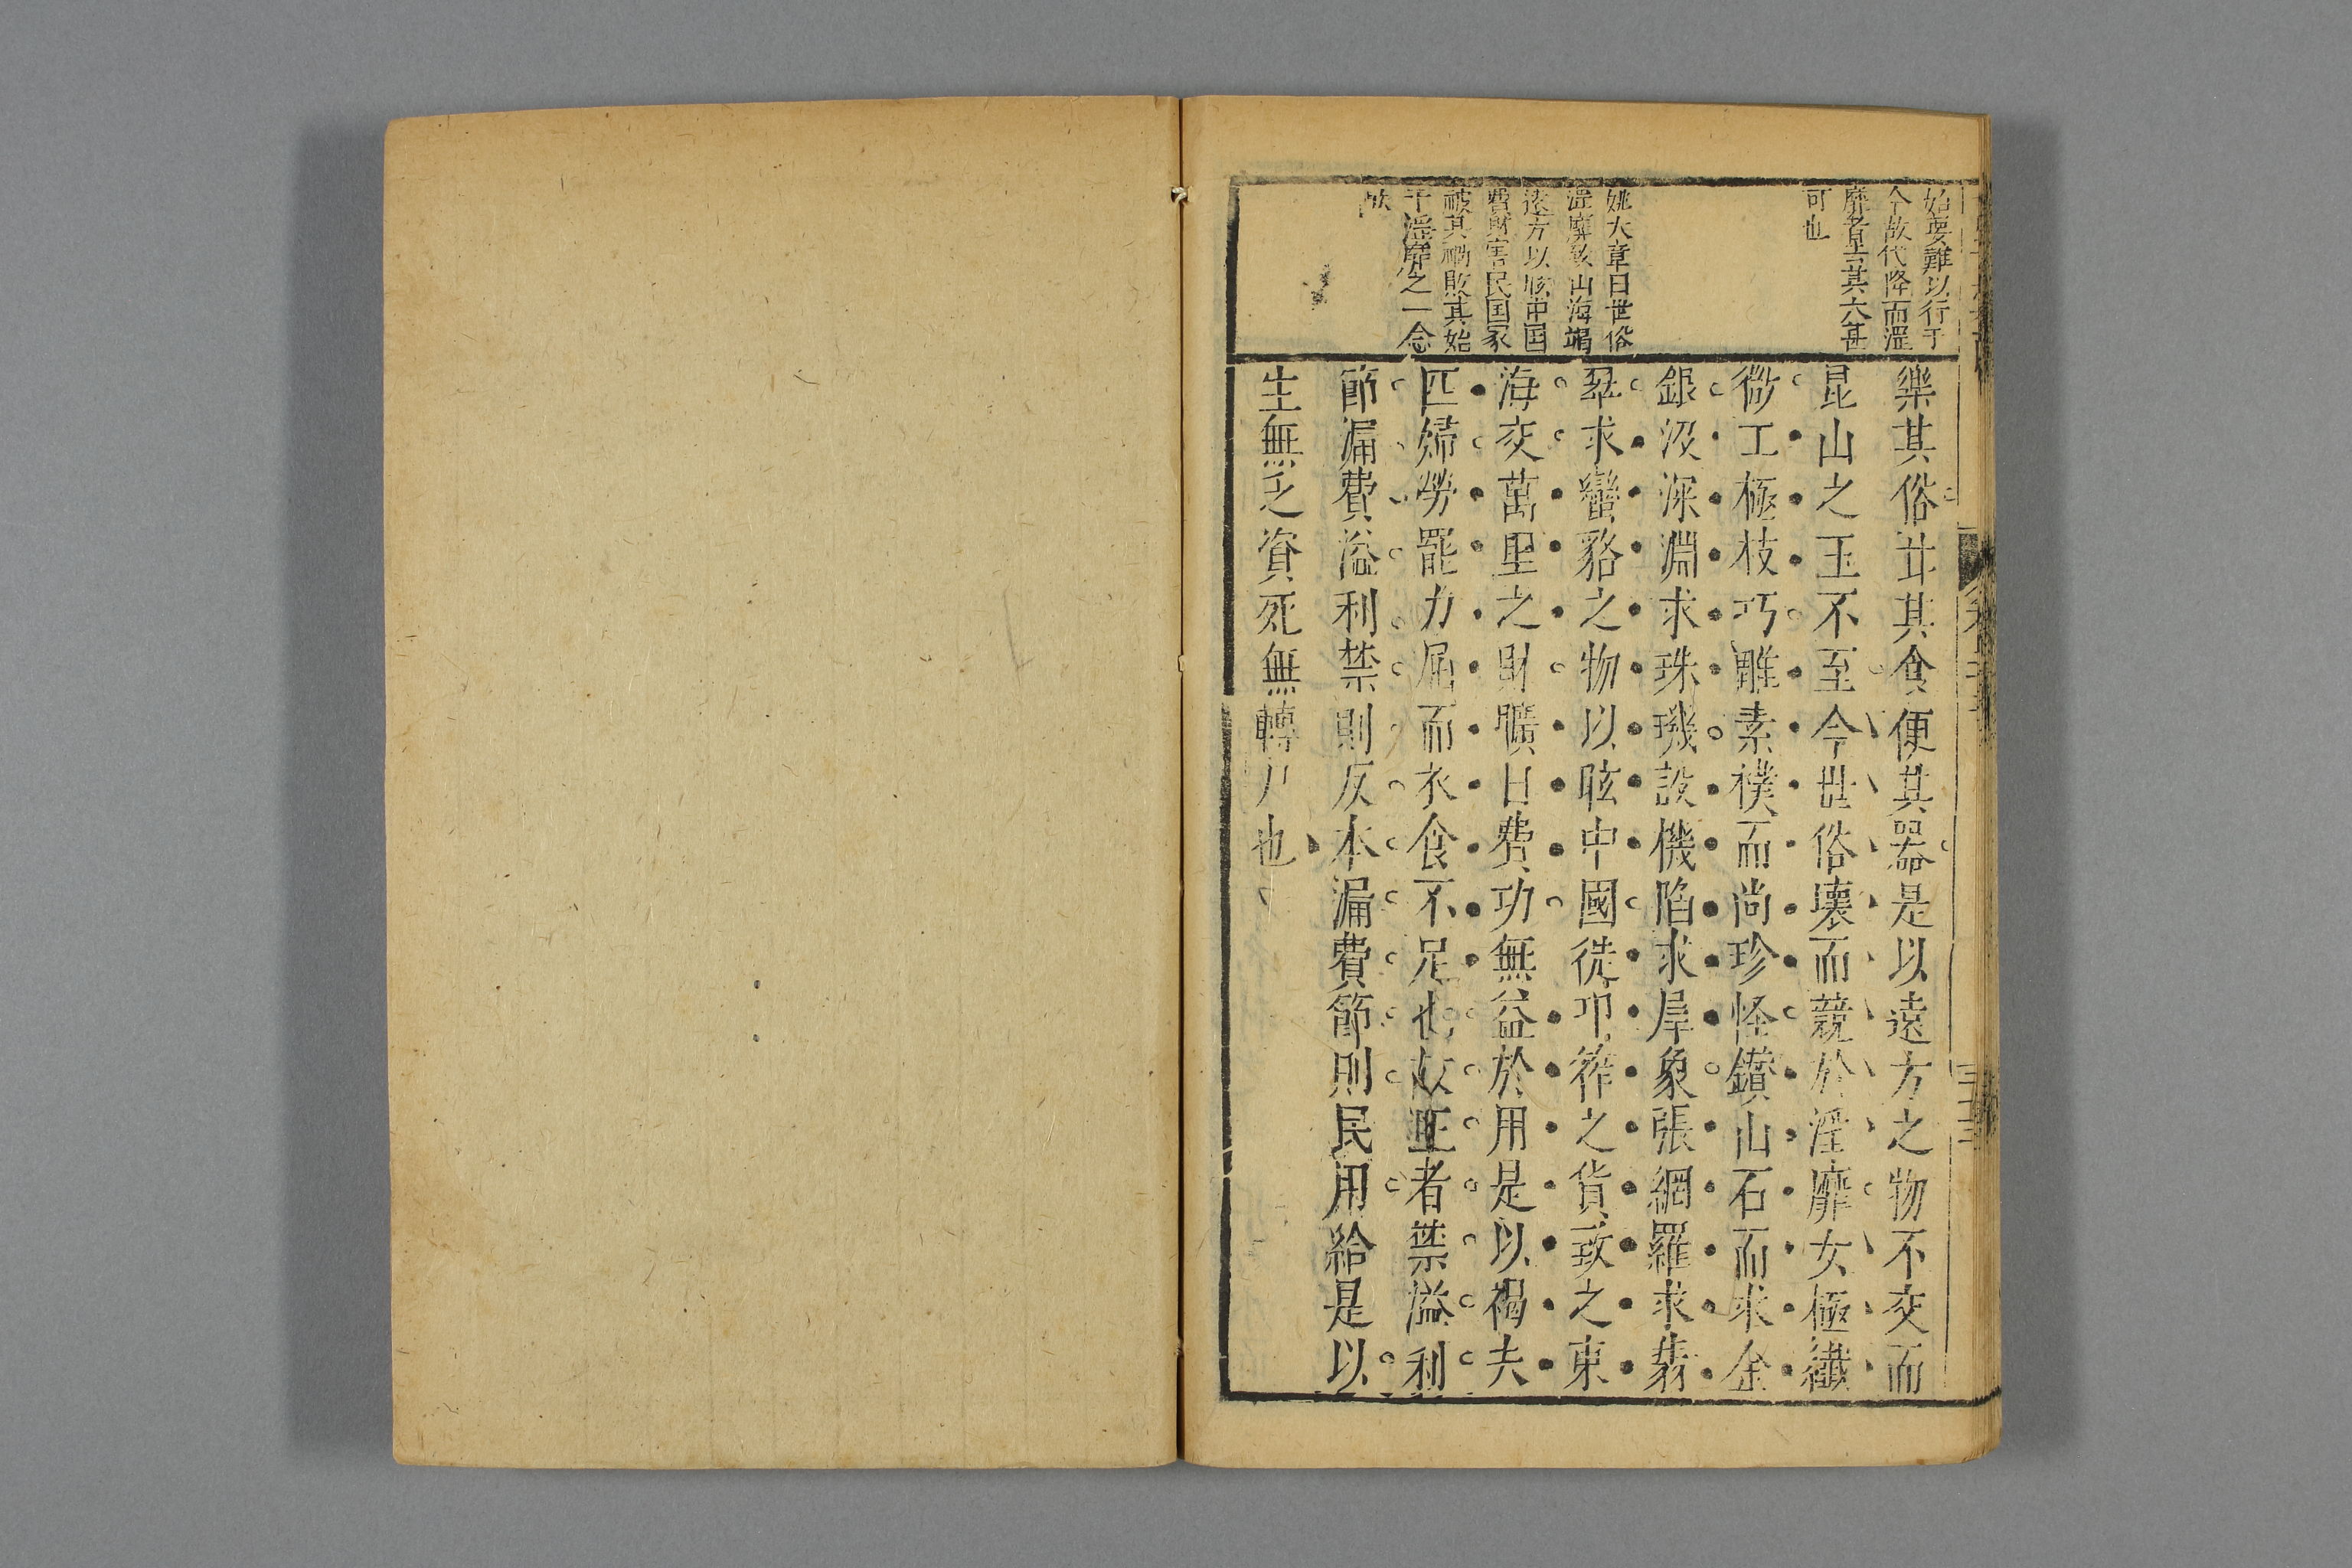 始要難以行于
今故代降而滛
靡者皇其六甚
可也
姚大章曰世俗
滛靡致山海竭
遠方以眩中囯
費財害民囯家
被其禍敗其始
于滛靡之一念
樂其俗甘其食便其器是以遠方之物不交而
昆山之玉不至今世俗壞而競於淫靡女極纖
微工極技巧雕素樸而尚珍怪鑚山石而求金
銀沒深淵求珠璣設機陷求犀象張網羅求翡
翠求蠻貉之物以眩中國徙卭筰之貨致之東
海交萬里之財曠日費功無益於用是以褐夫
匹婦勞罷力屈而衣食不足也故王者禁溢利
節漏費溢利禁則反本漏費節則民用給是以
生無乏資死無轉尸也